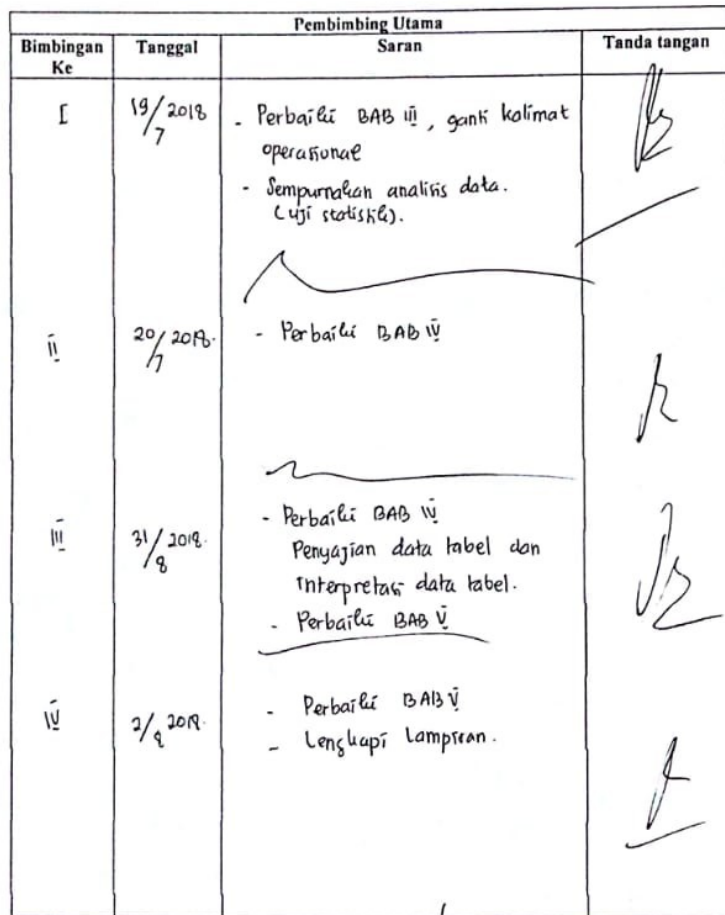 Pembimbing Utama
Bimbingan Ke Tanggal Saran Tanda tangan
I 19/7 2018 - Perbaiki BAB III, ganti kalimat
operasional
- Sempurnakan analisis data.
(uji statistik).
II 20/7 2018. - Perbaiki BAB IV
III 31/8 2018. - Perbaiki BAB IV
Penyajian data tabel dan
Interpretasi data tabel.
- Perbaiki BAB V
IV 2/9 2018. - Perbaiki BAB V
- Lengkapi Lampiran.